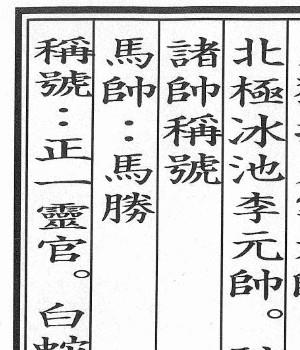 北極冰池李元帥。
諸帥稱號
馬帥：馬勝
稱號：正一靈官。白蛇